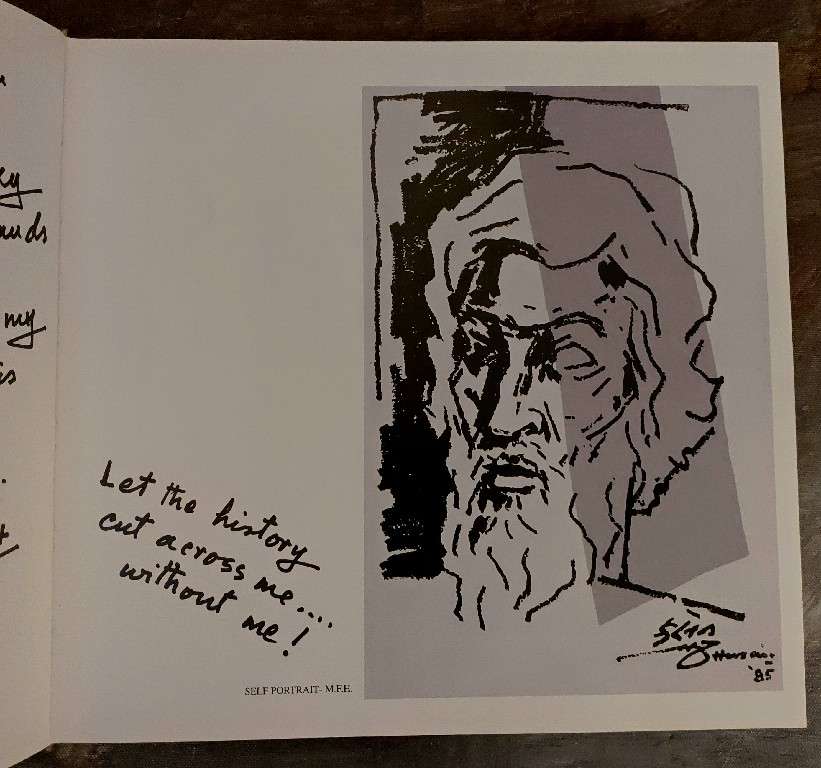 ey
my
is
Let the history
cut across me....
without me!
SELF PORTRAIT- M.F.E.
Husain
'85